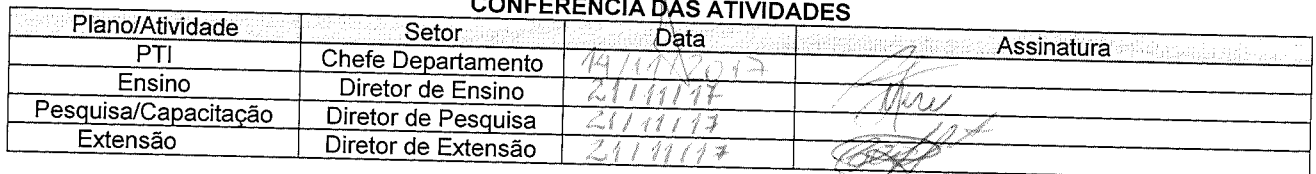 CONFERÊNCIA DAS ATIVIDADES
Plano/Atividade Setor Data Assinatura
PTI Chefe Departamento 14/11/2017
Ensino Diretor de Ensino 21/11/17
Pesquisa/Capacitação Diretor de Pesquisa 21/11/17
Extensão Diretor de Extensão 21/11/17